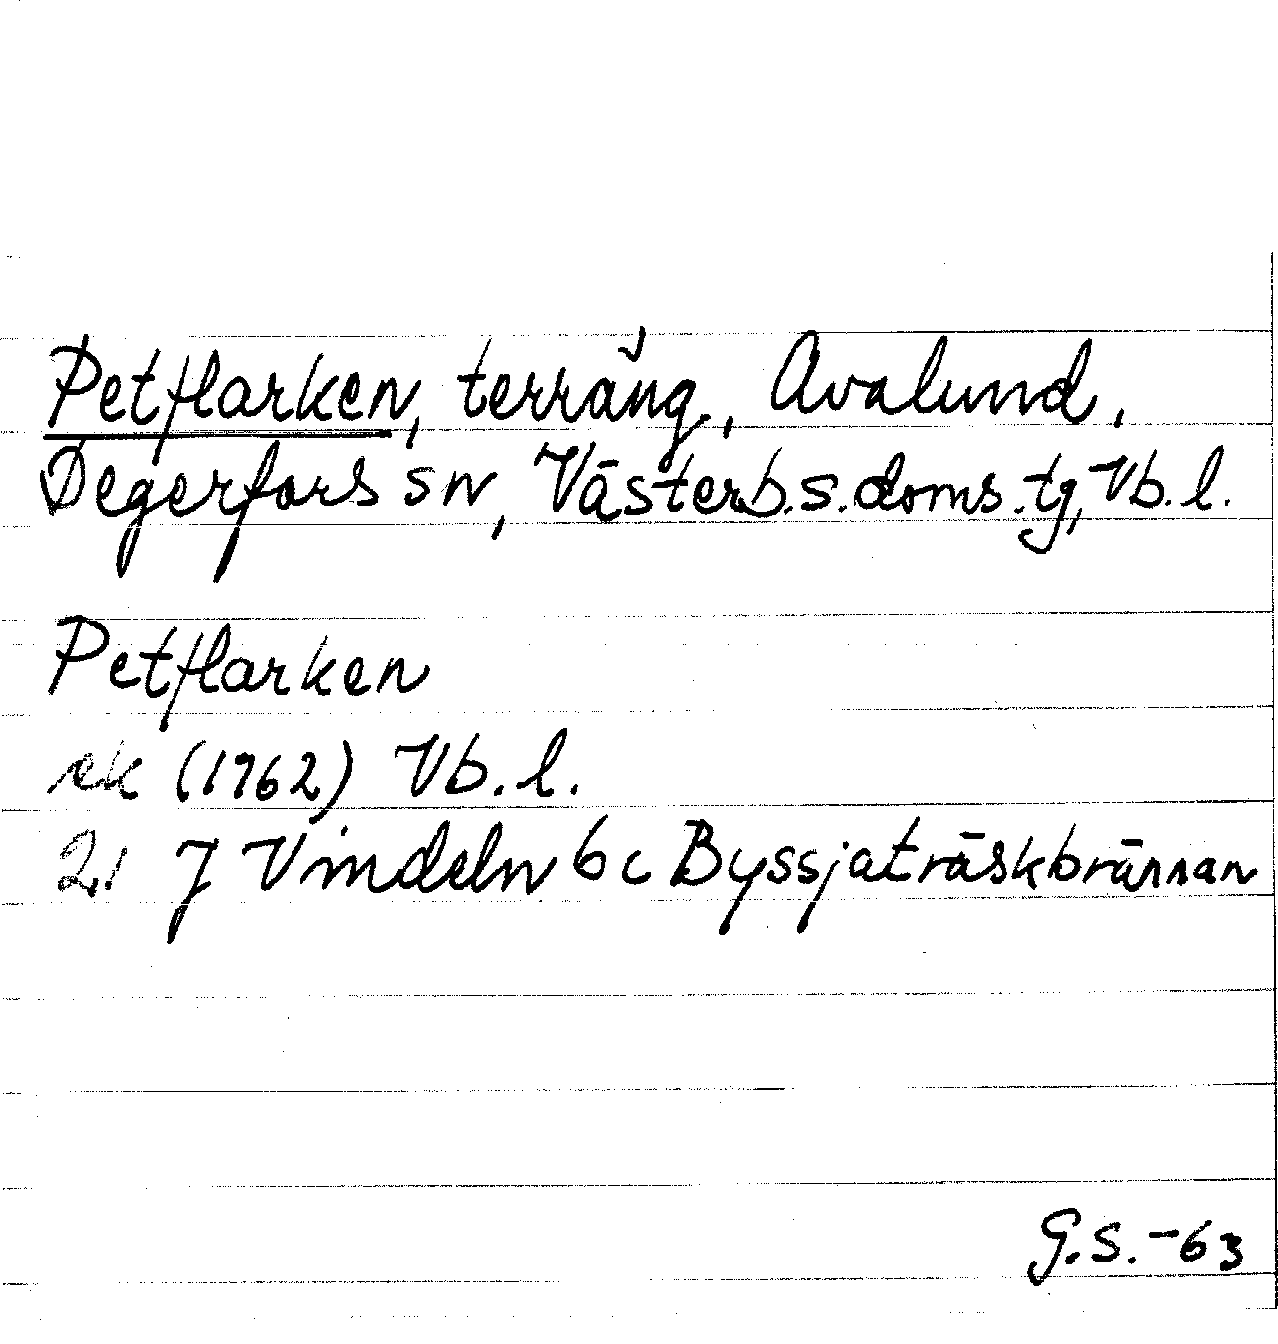 Petflarken, terräng, Avalund,
Degerfors sn, Västerb.s.doms.tg, Vb.l.
Petflarken
ek (1962) Vb.l.
21 J Vindeln 6 c Byssjaträskbrännan
G.S.-63